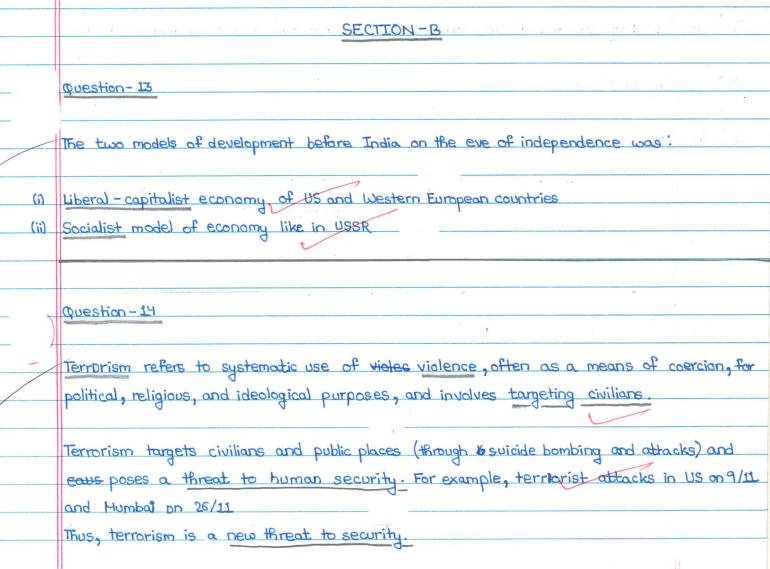 SECTION-B
Question-13
The two models of development before India on the eve of independence was:
(i) Liberal-capitalist economy, of US and Western European countries
(ii) Socialist model of economy like in USSR
Question-14
Terrorism refers to systematic use of violes violence, often as a means of coercion, for
political, religious, and ideological purposes, and involves targeting civilians.
Terrorism targets civilians and public places (through suicide bombing and attacks) and
poses a threat to human security. For example, terrorist attacks in US on 9/11
and Mumbai on 26/11
Thus, terrorism is a new threat to security.